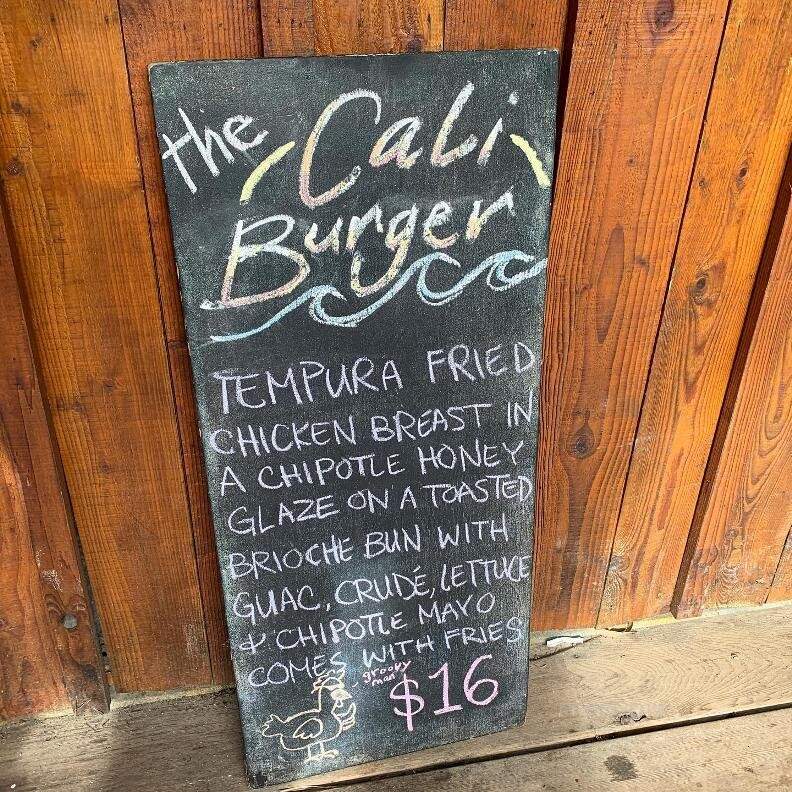 the Cali
Burger
TEMPURA FRIED
CHICKEN BREAST IN
A CHIPOTLE HONEY
GLAZE ON A TOASTED
BRIOCHE BUN WITH
GUAC, CRUDÉ, LETTUCE
& CHIPOTLE MAYO
COMES WITH FRIES
groovy
man
$16